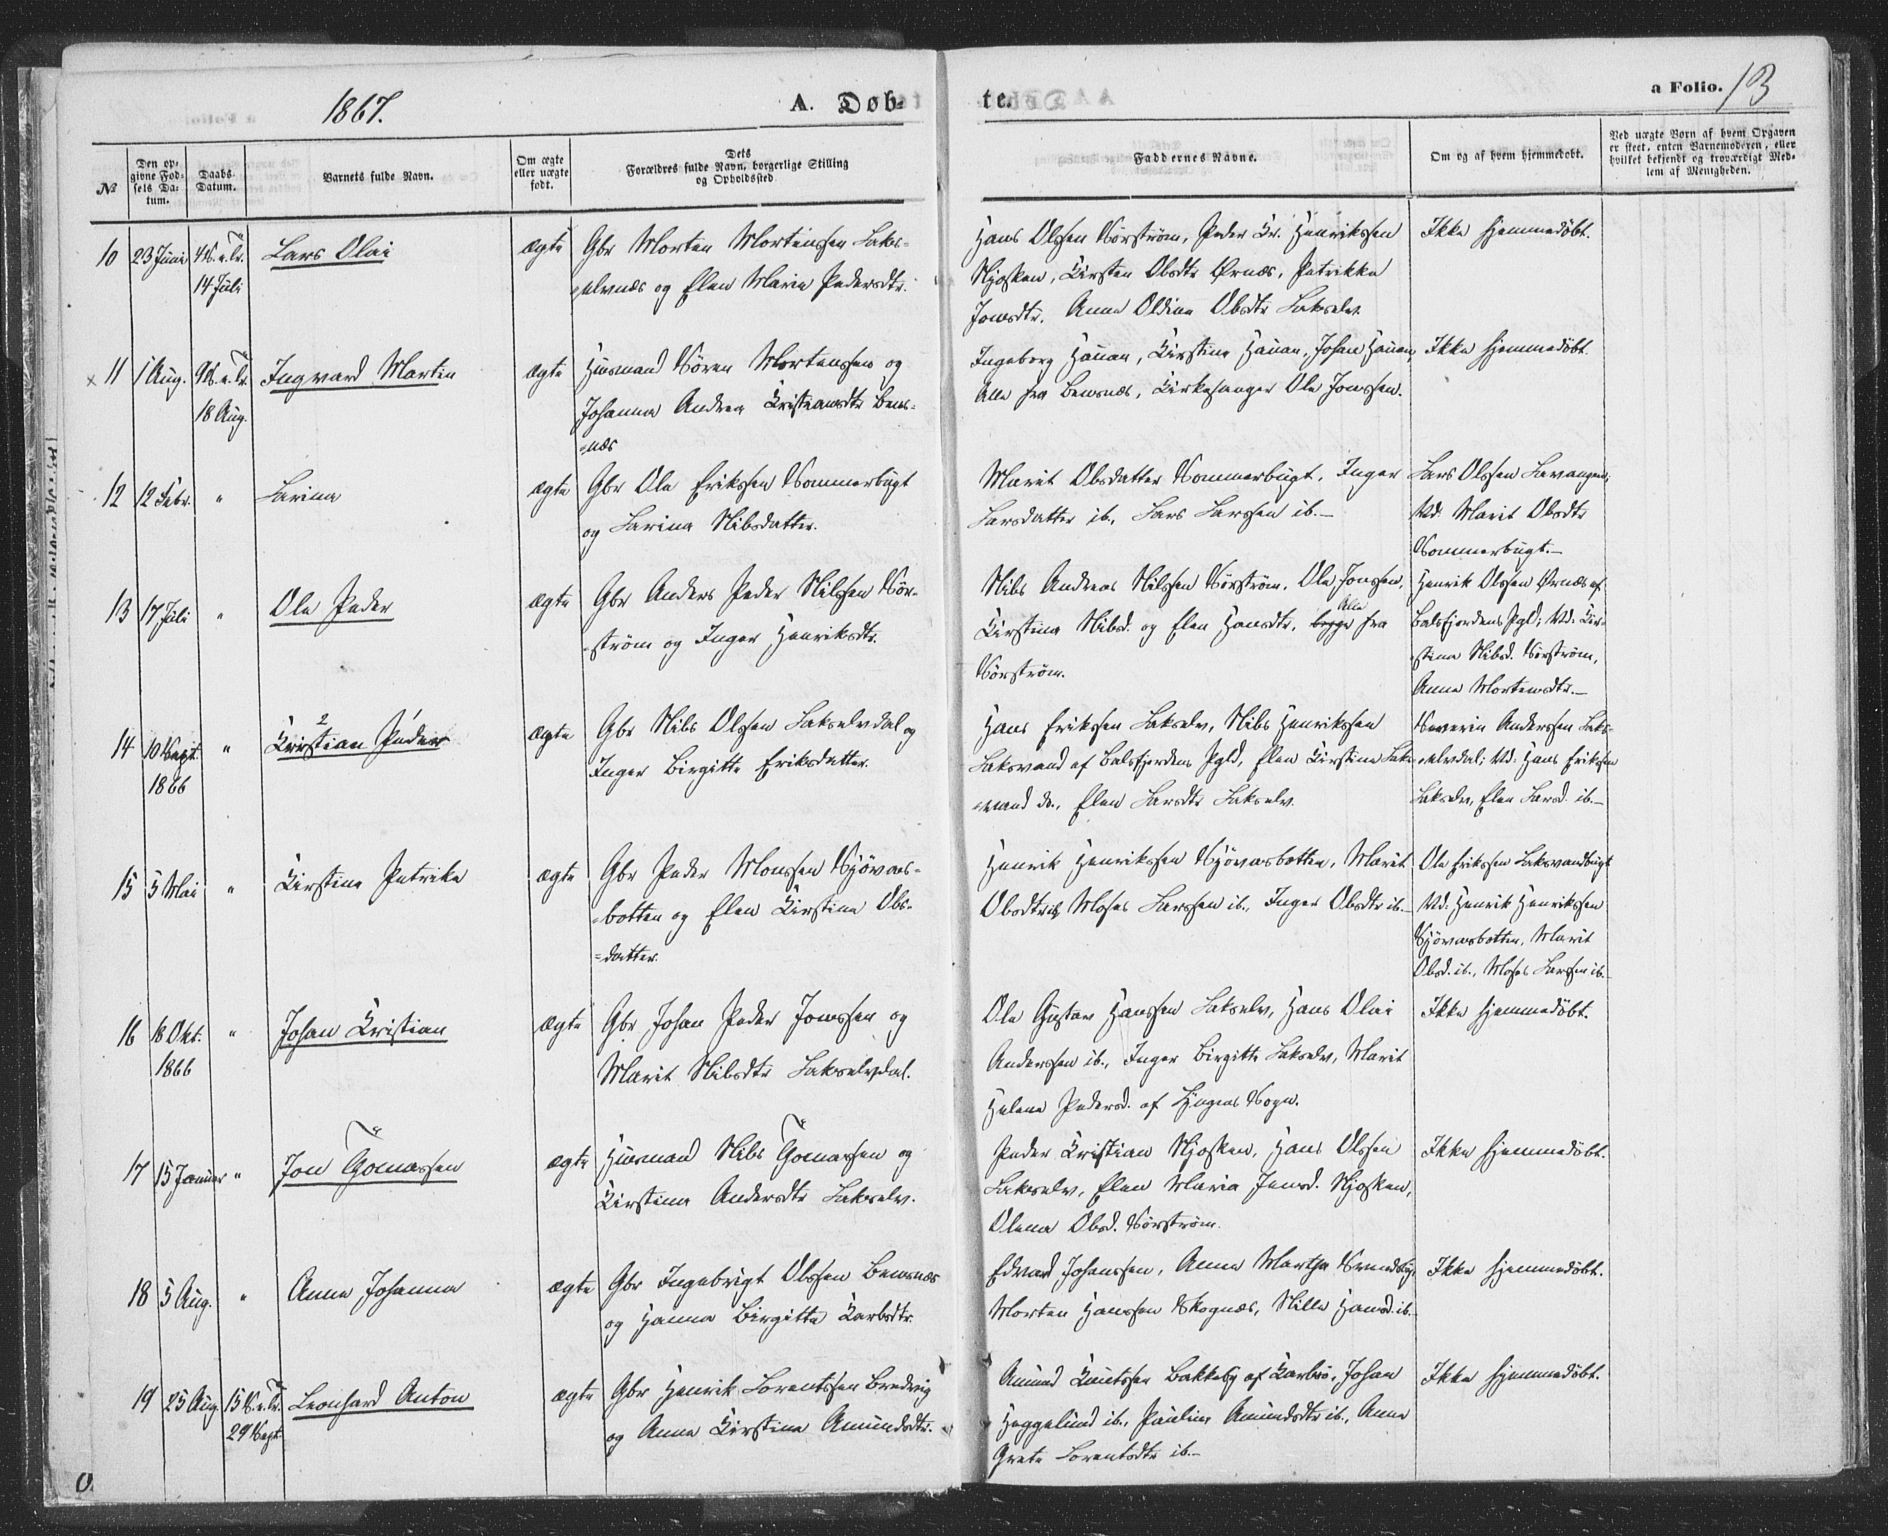 1867.
A. Døb-
te.
a Folio. 13
№
Den op-
givne Fød-
sels Da-
tum.
Daabs
Datum.
Barnets fulde Navn.
Om ægte
eller uægte
født.
Dets
Forældres fulde Navn, borgerlige Stilling
og Opholdssted
Faddernes Navne.
Om og af hvem hjemmedøbt.
Ved uægte Børn af hvem Opgaven
er skeet, enten Barnemoderen, eller
hvilket bekjendt og troværdigt Med-
lem af Menigheden.
10 23 Juni 4 S. e. Tr.
14 Juli
Lars Olai
ægte
Gbr Morten Mortensen Laks-
elvnæs og Elen Maria Pedersdtr.
Hans Olssen Sörström, Peder Kr. Henrikssen
Njosken, Kirsten Olsdtr Ørnæs, Patrikka
Jonsdtr. Anna Oldina Olsdtr Lakselv.
Ikke hjemmedöbt.
x 11 1 Aug. 9 S. e. Tr.
18 Aug.
Ingvard Martin
ægte
Husmand Sören Mortenssen og
Johanna Andrea Kristiansdtr Bens-
næs
Ingeborg Hauan, Kirstine Hauan, Johan Hauan,
Alle fra Bensnæs, Kirkesanger Ole Jonssen.
Ikke hjemmedöbt.
12 12 Febr. "
Larina
ægte
Gbr Ole Erikssen Sommerbugt
og Larina Nilsdatter.
Marit Olsdatter Sommerbugt, Inger
Larsdatter ib., Lars Larssen ib.—
Lars Olssen Lavangen;
Vd: Marit Olsdtr
Sommerbugt.—
13 17 Juli "
Ole Peder
ægte
Gbr Anders Peder Nilssen Sör-
ström og Inger Henriksdtr.
Nils Andreas Nilssen Sörström, Ole Jonssen,
Kirstina Nilsd. og Elen Hansdtr, begge Alle fra
Sörström.
Henrik Olssen Ørnæs af
Balsfjordens Pgld; Vd: Kir-
stina Nilsd. Sörström,
Anna Mortensdtr.—
14 10 Sept.
1866 "
2 1
Kristian Peder
ægte
Gbr Nils Olssen Lakselvdal og
Inger Birgitte Eriksdatter.
Hans Erikssen Lakselv, Nils Henrikssen
Laksvand af Balsfjordens Pgld, Elen Kirstina Laks-
vand do., Elen Larsdtr Lakselv.
Severin Anderssen Laks-
elvdal; Vd: Hans Erikssen
Lakselv, Elen Larsd. ib.—
15 5 Mai "
Kirstine Petrika
ægte
Gbr Peder Monssen Sjövas-
botten og Elen Kirstina Ols-
datter.
Henrik Henrikssen Sjövasbotten, Marit
Olsdtr ib, Moses Larssen ib., Inger Olsdtr ib.—
Ole Erikssen Laksvandbugt
Vd: Henrik Henrikssen
Sjövasbotten, Marit
Olsd. ib., Moses Larssen ib.—
16 18 Okt.
1866 "
Johan Kristian
ægte
Gbr Johan Peder Jonssen og
Marit Nilsdtr Lakselvdal.
Ole Gustav Hanssen Lakselv, Hans Olai
Anderssen ib., Inger Birgitte Lakselv, Marit
Helene Pedersd. af Lyngens Sogn.
Ikke hjemmedöbt.
17 15 Januar "
Jon Tomassen
ægte
Husmand Nils Tomassen og
Kirstina Andersdtr Lakselv.
Peder Kristian Njosken, Hans Olssen
Lakselv, Elen Maria Jensd. Njosken,
Olena Olsd. Sörström.
Ikke hjemmedöbt.
18 5 Aug. "
Anne Johanna
ægte
Gbr Ingebrigt Olssen Bensnæs
og Hanna Birgitta Karlsdtr.
Edvard Johanssen, Anna Martha
Morten Hanssen Skognæs, Nilla Hansd. ib.—
Ikke hjemmedöbt.
19 25 Aug. 15 S. e. Tr.
29 Sept
Leonhard Anton
ægte
Gbr Henrik Lorentssen Bredvig
og Anna Kirstina Amundsdtr.
Amund Knutssen Bakkeby af Karlsö, Johan
Heggelund ib., Pauline Amundsdtr ib., Anne
Grete Lorentsdtr ib.—
Ikke hjemmedöbt.